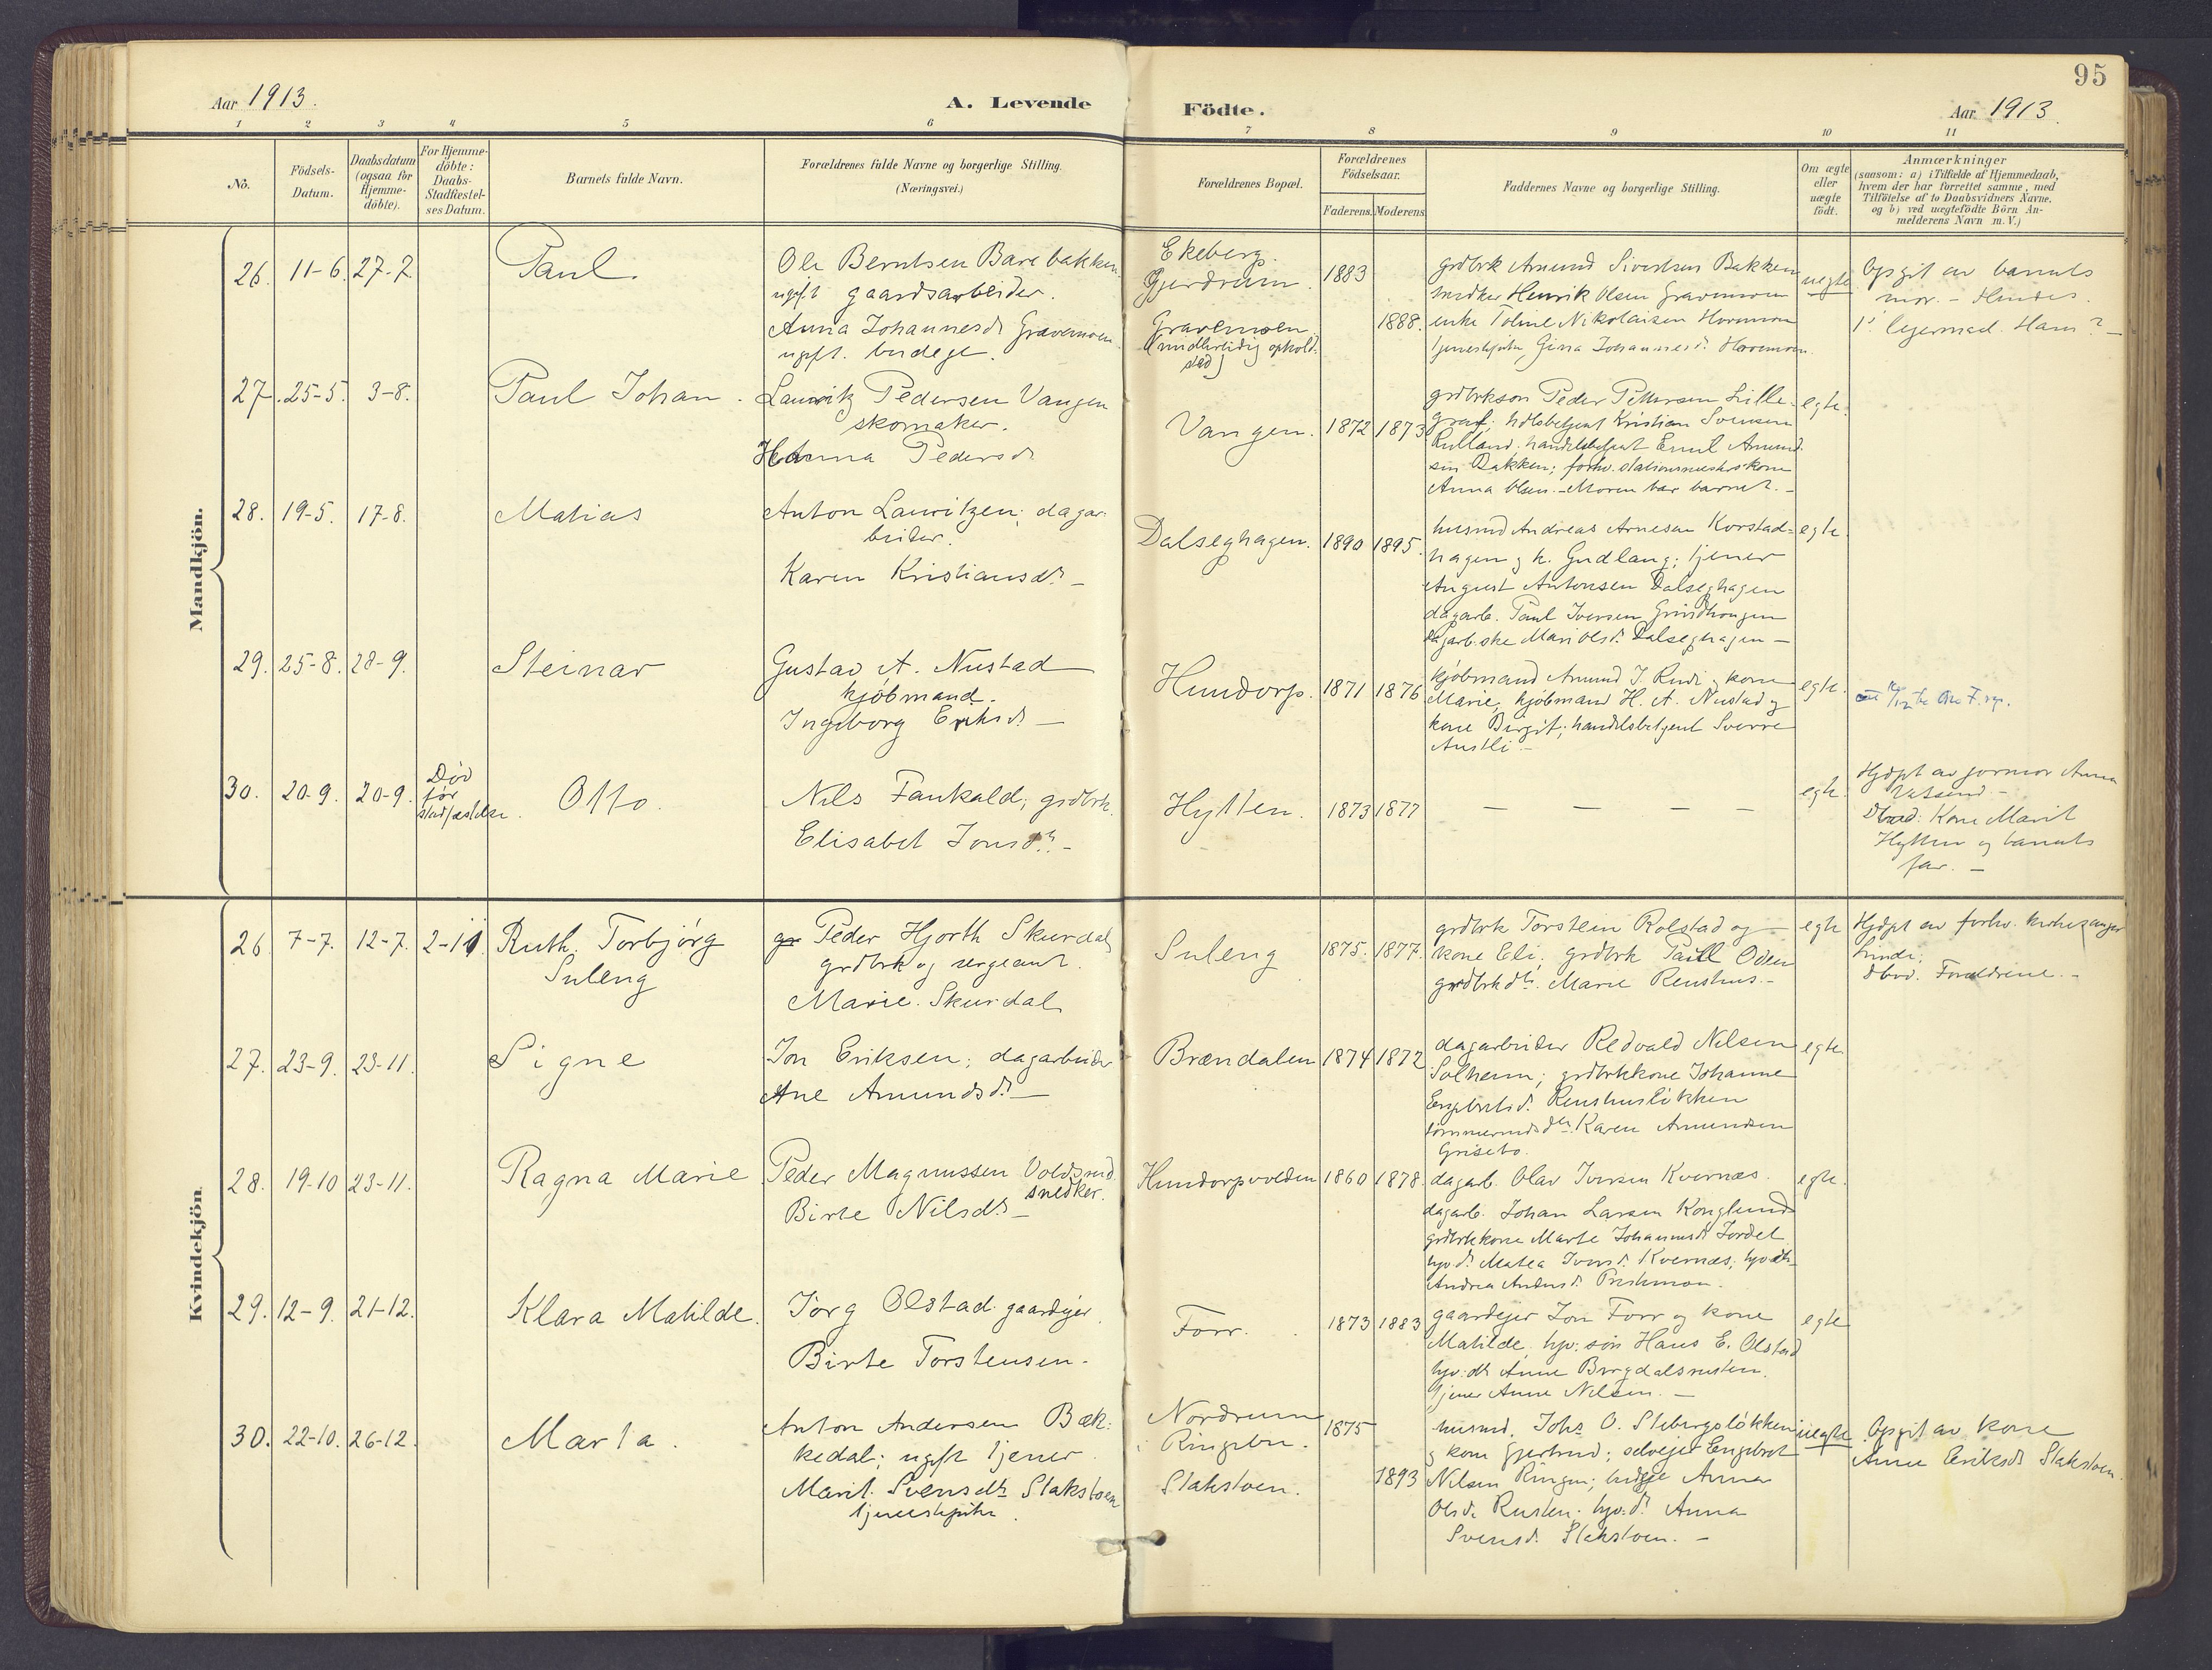 95
Aar 1913.
A. Levende
Födte.
Aar 1913.
1 2 3 4 5 6 7 8 9 10 11
No.
Födsels-
Datum.
Daabsdatum
(ogsaa for
Hjemme-
döbte).
For Hjemme-
döbte:
Daabs-
Stadfæstel-
ses Datum.
Barnets fulde Navn.
Forældrenes fulde Navne og borgerlige Stilling.
(Næringsvei.)
Forældrenes Bopæl.
Forældrenes
Födselsaar.
Faderens. Moderens.
Faddernes Navne og borgerlige Stilling.
Om ægte
eller
uægte
födt.
Anmærkninger
(saasom: a) i Tilfælde af Hjemmedaab,
hvem der har forrettet samme, med
Tilföielse af to Daabsvidners Navne.
og b) ved uægtefödte Börn An-
melderens Navn m. V.)
Mandkjön.
26. 11-6. 27-7
Paul.
Ole Berntsen Barebakken
ugift gaardsarbeider.
Anna Johannesd. Gravemoen
ugift. budege.
Ekeberg.
Gjerdrum.
Gravemoen.
(midlertidig ophold-
sted)
1883
1888.
grdbrk Amund Sivertsen Bakken
snedker Henrik Olsen Gravemoen
enke Toline Nikolaisen
Gina Johannesd.
uegte
Opgit av barnets
mor. - Hendes
1' leiermaal. Hans?
27. 25-5. 3-8.
Paul Johan.
Lauritz Pedersen Vangen
skomaker.
Hanna Pedersd.
Vangen. 1872 1873
grdbrkson Peder Pettersen Lille-
Kristian Svensen
Rulland. handelsbetjent Emil Amund-
sen Bakken; forhv. stationsmesterskone
Anna Olsen. - Moren bar barnet. -
egte.
28. 19-5. 17-8.
Matias
Anton Lauritzen; dagar-
beider.
Karen Kristiansd. -
Dalseghagen. 1890 1895.
husmd Andreas Arnesen Korstad-
hagen og k. Gudlaug; tjener
August Antonsen Dalseghagen
dagarb. Paul Iversen
dagarb.ske Mari Olsd. Dalseghagen -
egte.
29. 25-8. 28-9.
Steinar
Gustav A. Nustad
kjøbmand.
Ingeborg Eriksd. -
Hundorp. 1871 1876
kjøbmand Amund J. Rudi og kone
Marie, kjøbmand H. A. Nustad og
kone Birgit; handelsbetjent Sverre
Austli -
egte.
30. 20-9. 20-9.
Død
før
stadfæstelse.
Otto.
Nils Faukald; grdbrk.
Elisabet Jonsd. -
Hytten. 1873 1877
- - - -
egte.
Hjdpt av jormor Anna
Dbvd: Kone Marit
Hytten og barnets
far. -
Kvindekjön.
26. 7-7. 12-7. 2-11
Ruth Torbjørg
Suleng
Peder Hjorth Skurdal
grdbrk og sergeant.
Marie Skurdal
Suleng 1875. 1877.
grdbrk Torstein Rolstad og
kone Eli; grdbrk Paul Oden
grdbrkdt. Marie Renshus. -
egte
Hjdpt av forhv. kirkesanger
Linde;
dbvd. Foreldrene. -
27. 23-9. 23-11.
Signe
Jon Eriksen; dagarbeider
Ane Amundsd. -
Brændalen 1874 1872
dagarbeider Redvald Nilsen
Solheim; grdbrkkone Johanne
Engebretsd. Renshusløkken
Karen Amundsen
Grisebo.
egte
28. 19-10 23-11.
Ragna Marie
Peder Magnussen Voldsmd
snedker.
Birte Nilsd. -
Hundorpvolden 1860 1878.
dagarb. Olav Iversen Kvernæs.
dagarb. Johan Larsen Konglund
grdbrkkone Marte Johannesd. Jordet
Matea Iversd. Kvernæs;
Andrea
egte.
29. 12-9. 21-12.
Klara Matilde.
Jørg Olstad gaardejer.
Birte Torstensen.
Forr. 1873 1883
gaardejer Jon Forr og kone
Matilde, hjv. søn Hans E. Olstad
hjv. dt Anne
tjener Anne Nilsen. -
egte
30. 22-10. 26-12.
Marta.
Anton Andersen Bæk-
kedal; ugift tjener
Marit Svensdt. Slakstoen
tjenestepike.
Nordrum
i Ringebu.
Slakstoen.
1875
1893
husmd. Johs O. Stebergsløkken
og kone Gjertrud; selveier Engebret
Nilsen Ringen; budeje Anna
Olsd. Rusten; hjv.d. Anna
Svensd. Slakstoen. -
uegte
Opgit av kone
Anne Eriksd. Slakstoen.